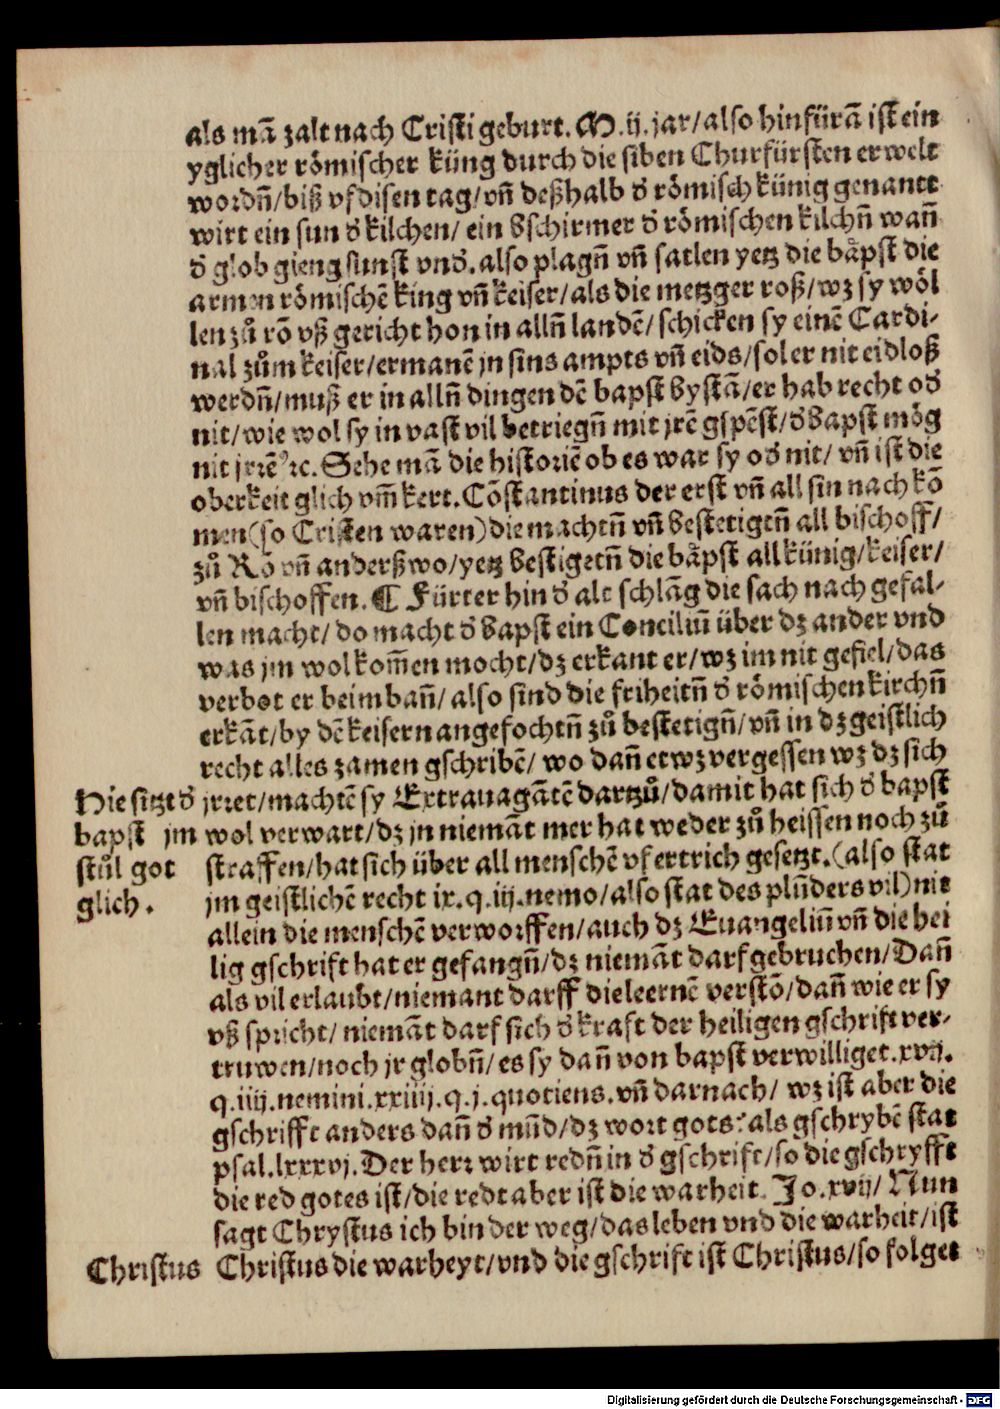 als mã zalt nach Cristi geburt. M.ij.jar/also hinfürã ist ein
yglicher römischer küng durch die siben Churfürsten erwelt
wordñ/biß vf disen tag/vñ deßhalb ð römisch künig genantt
wirt ein sun ð kilchen/ ein Bschirmer ð römischen kilchñ wañ
ð glob gieng sunst vnð. also plagñ vñ satlen yetz die bäpst die
armen römischẽ king vñ keiser/als die metzger roß/wz sy wöl
len zů rõ vß gericht hon in allñ landẽ/schicken sy einẽ Cardi-
nal zům keiser/ermanẽ jn sins ampts vñ eids/sol er nit eidloß
werdñ/muß er in allñ dingen dẽ bapst bystã/er hab recht oð
nit/wie wol sy in vast vil betriegñ mit jrẽ gspẽst/ð Bapst mög
nit jrrẽ ꝛc. Sehe mã die historiẽ ob es war sy oð nit/ vñ ist die
oberkeit glich vm̃ kert. Cõstantinus der erst vñ all sin nach kõ
men (so Cristen waren) die machtñ vñ Bestetigtñ all bischoff/
zů Rõ vñ anderßwo/yetz Bestigetñ die bäpst all künig/keiser/
vñ bischoffen. ¶ Fürter hin ð alt schlãg die sach nach gefal-
len macht/ do macht ð Bapst ein Conciliũ über dz ander vnd
was jm wol kom̃en mocht/dz erkant er/wz im nit gefiel/das
verbot er beim bañ/ also sind die friheitñ ð römischen kirchñ
erkãt/by dẽ keisern angefochtñ zů bestetigñ/vñ in dz geistlich
recht alles zamen gschribẽ/ wo dañ etwz vergessen wz dz sich
Hie sitzt ð jrret/machtẽ sy Extrauagãtẽ dartzů/damit hat sich ð bapst
bapst jm wol verwart/dz jn niemãt mer hat weder zů heissen noch zů
stůl got straffen/hat sich über all menschẽ vf ertrich gesetzt. (also stat
glich. jm geistlichẽ recht ix.q.iij.nemo/also stat des plũders vil) nit
allein die menschẽ verworffen/auch dz Euangeliũ vñ die hei
lig gschrift hat er gefangñ/dz niemãt darf gebruchen/Dañ
als vil erlaubt/niemant darff die leernẽ verstõ/dañ wie er sy
vß spricht/ niemãt darf sich ð kraft der heiligen gschrift ver-
truwen/noch jr globñ/es sy dañ von bapst verwilliget.xvij.
q.iiij.nemini.xxiiij.q.j.quotiens.vñ darnach/ wz ist aber die
gschrifft anders dañ ð mũd/dz wort gots? als gschrybẽ stat
psal.lxxxvj. Der herr wirt redñ in ð gschrift/so die gschryfft
die red gotes ist/die redt aber ist die warheit. Jo.xvij/ Nun
sagt Chrystus ich bin der weg/das leben vnd die warheit/ist
Christus Christus die warheyt/vnd die gschrift ist Christus/so folget
Digitalisierung gefördert durch die Deutsche Forschungsgemeinschaft - DFG